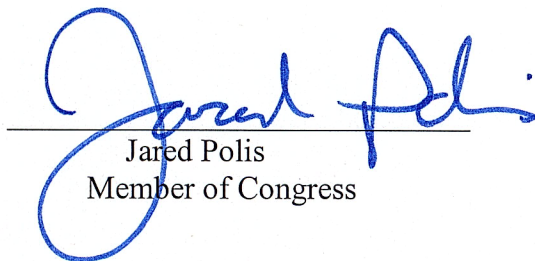 Jared Polis
Jared Polis
Member of Congress